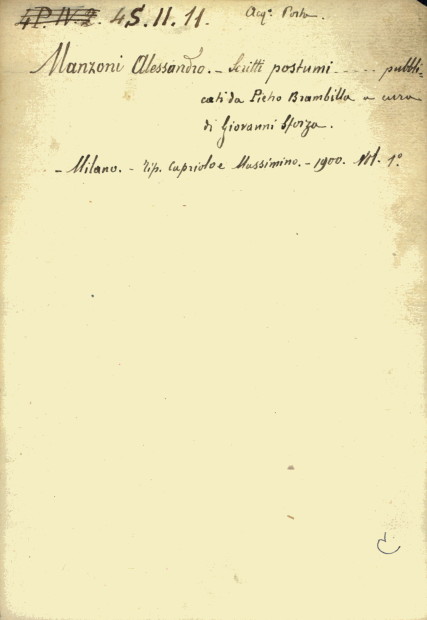 4P.IV.2. 4S.II.11. Acq.º Porta.
Manzoni Alessandro. - Scritti postumi ..... pubbli=
cati da Pietro Brambilla a cura
di Giovanni Sforza.
- Milano. - Tip. Capriolo e Massimino. - 1900. Vol. 1º